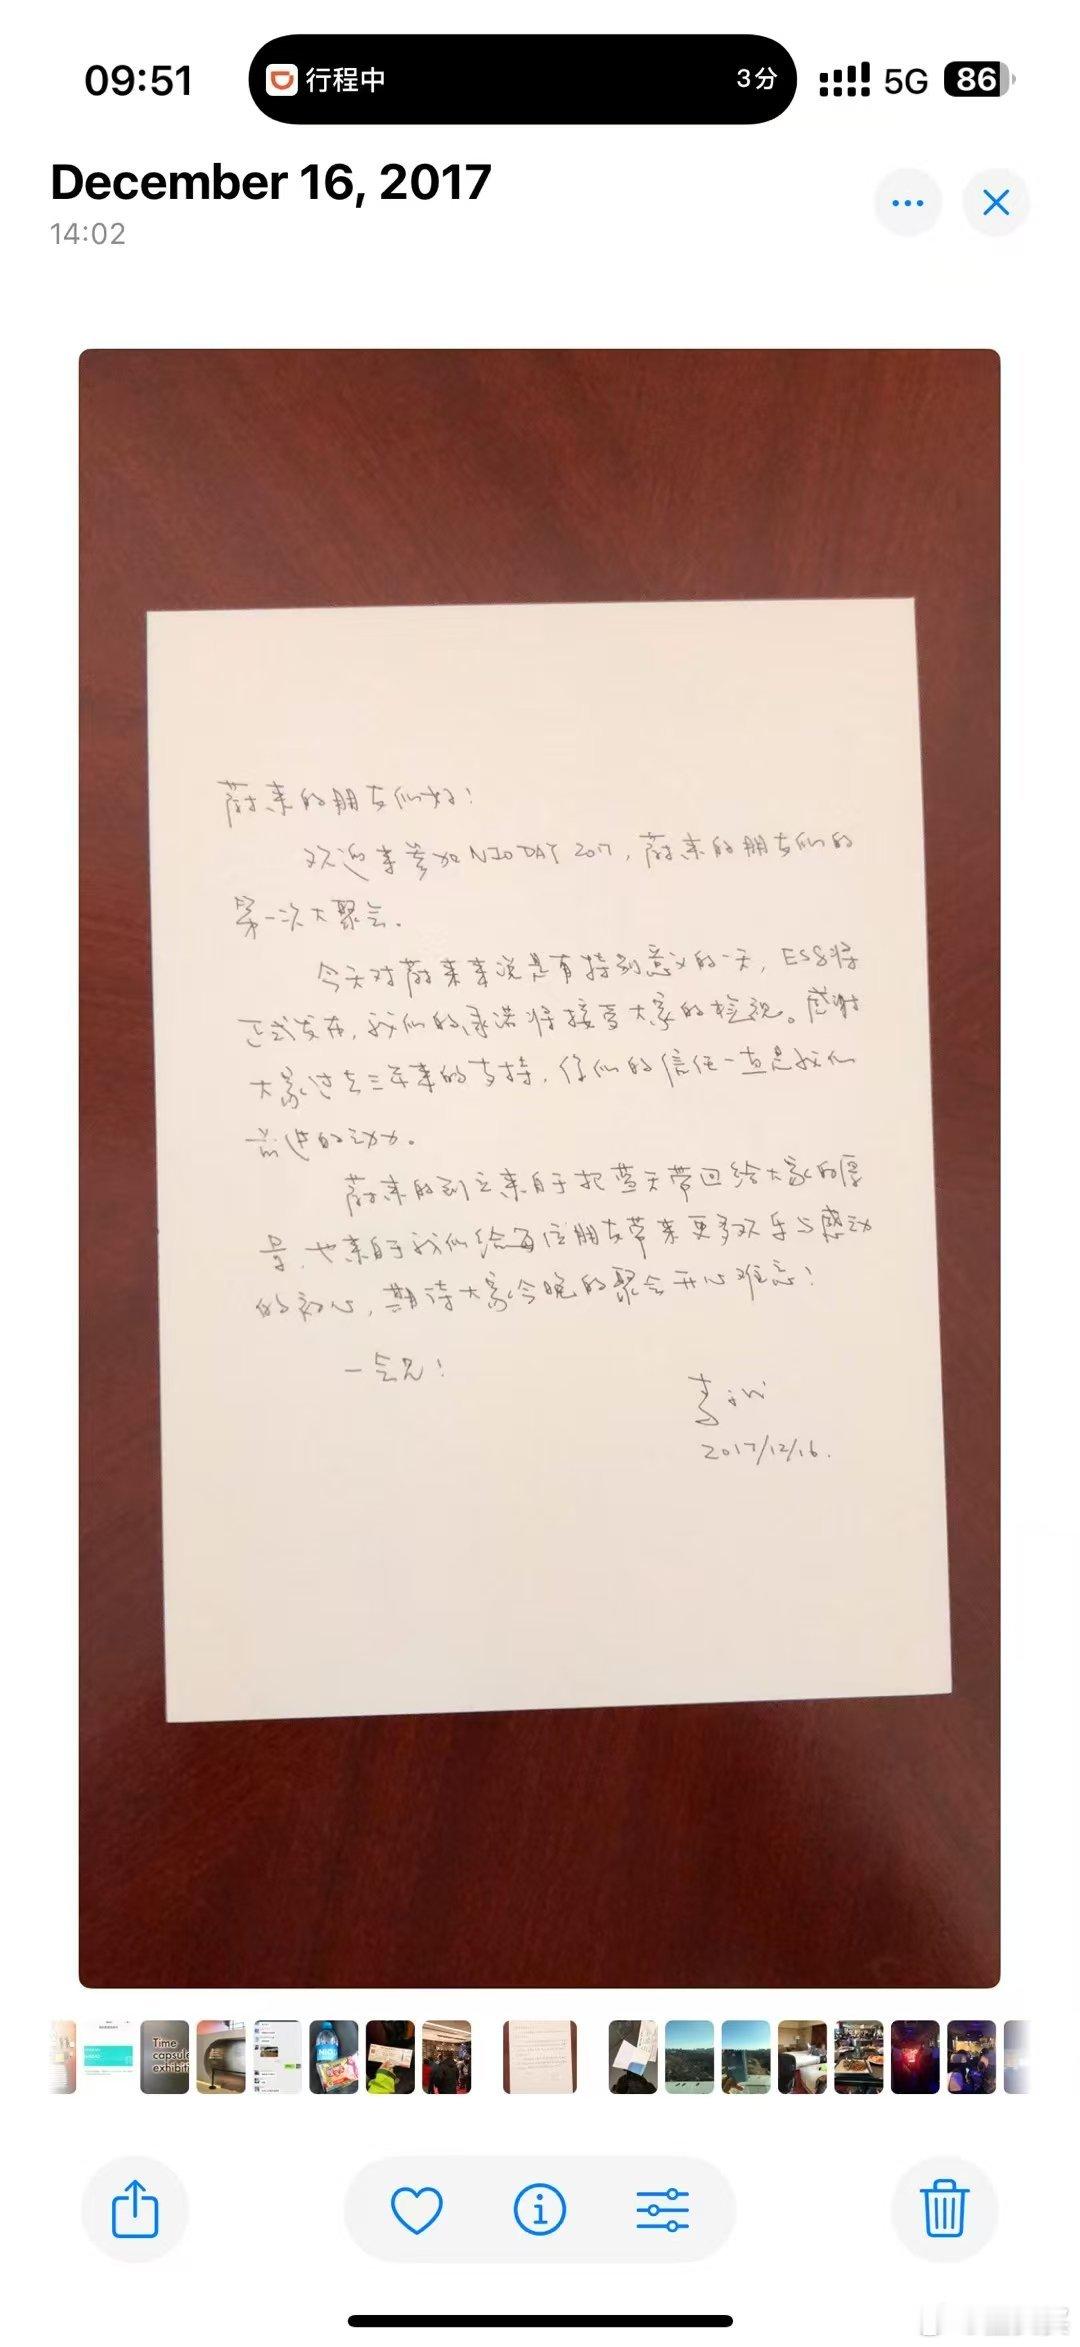 09:51
行程中
3分
5G
86
December 16, 2017
14:02
蔚来的朋友们好！
欢迎来参加NIO DAY 2017，蔚来的朋友们的
第一次大聚会。
今天对蔚来来说是有特别意义的一天，ES8将
正式发布，我们的承诺将接受大家的检视。感谢
大家过去三年来的支持，你们的信任一直是我们
前进的动力。
蔚来的创立来自于把蓝天带回给大家的愿
景，也来自于我们给每位朋友带来更多欢乐与感动
的初心，期待大家今晚的聚会开心难忘！
一会见！
李斌
2017/12/16.
Time
capsule
exhibiti
NIO